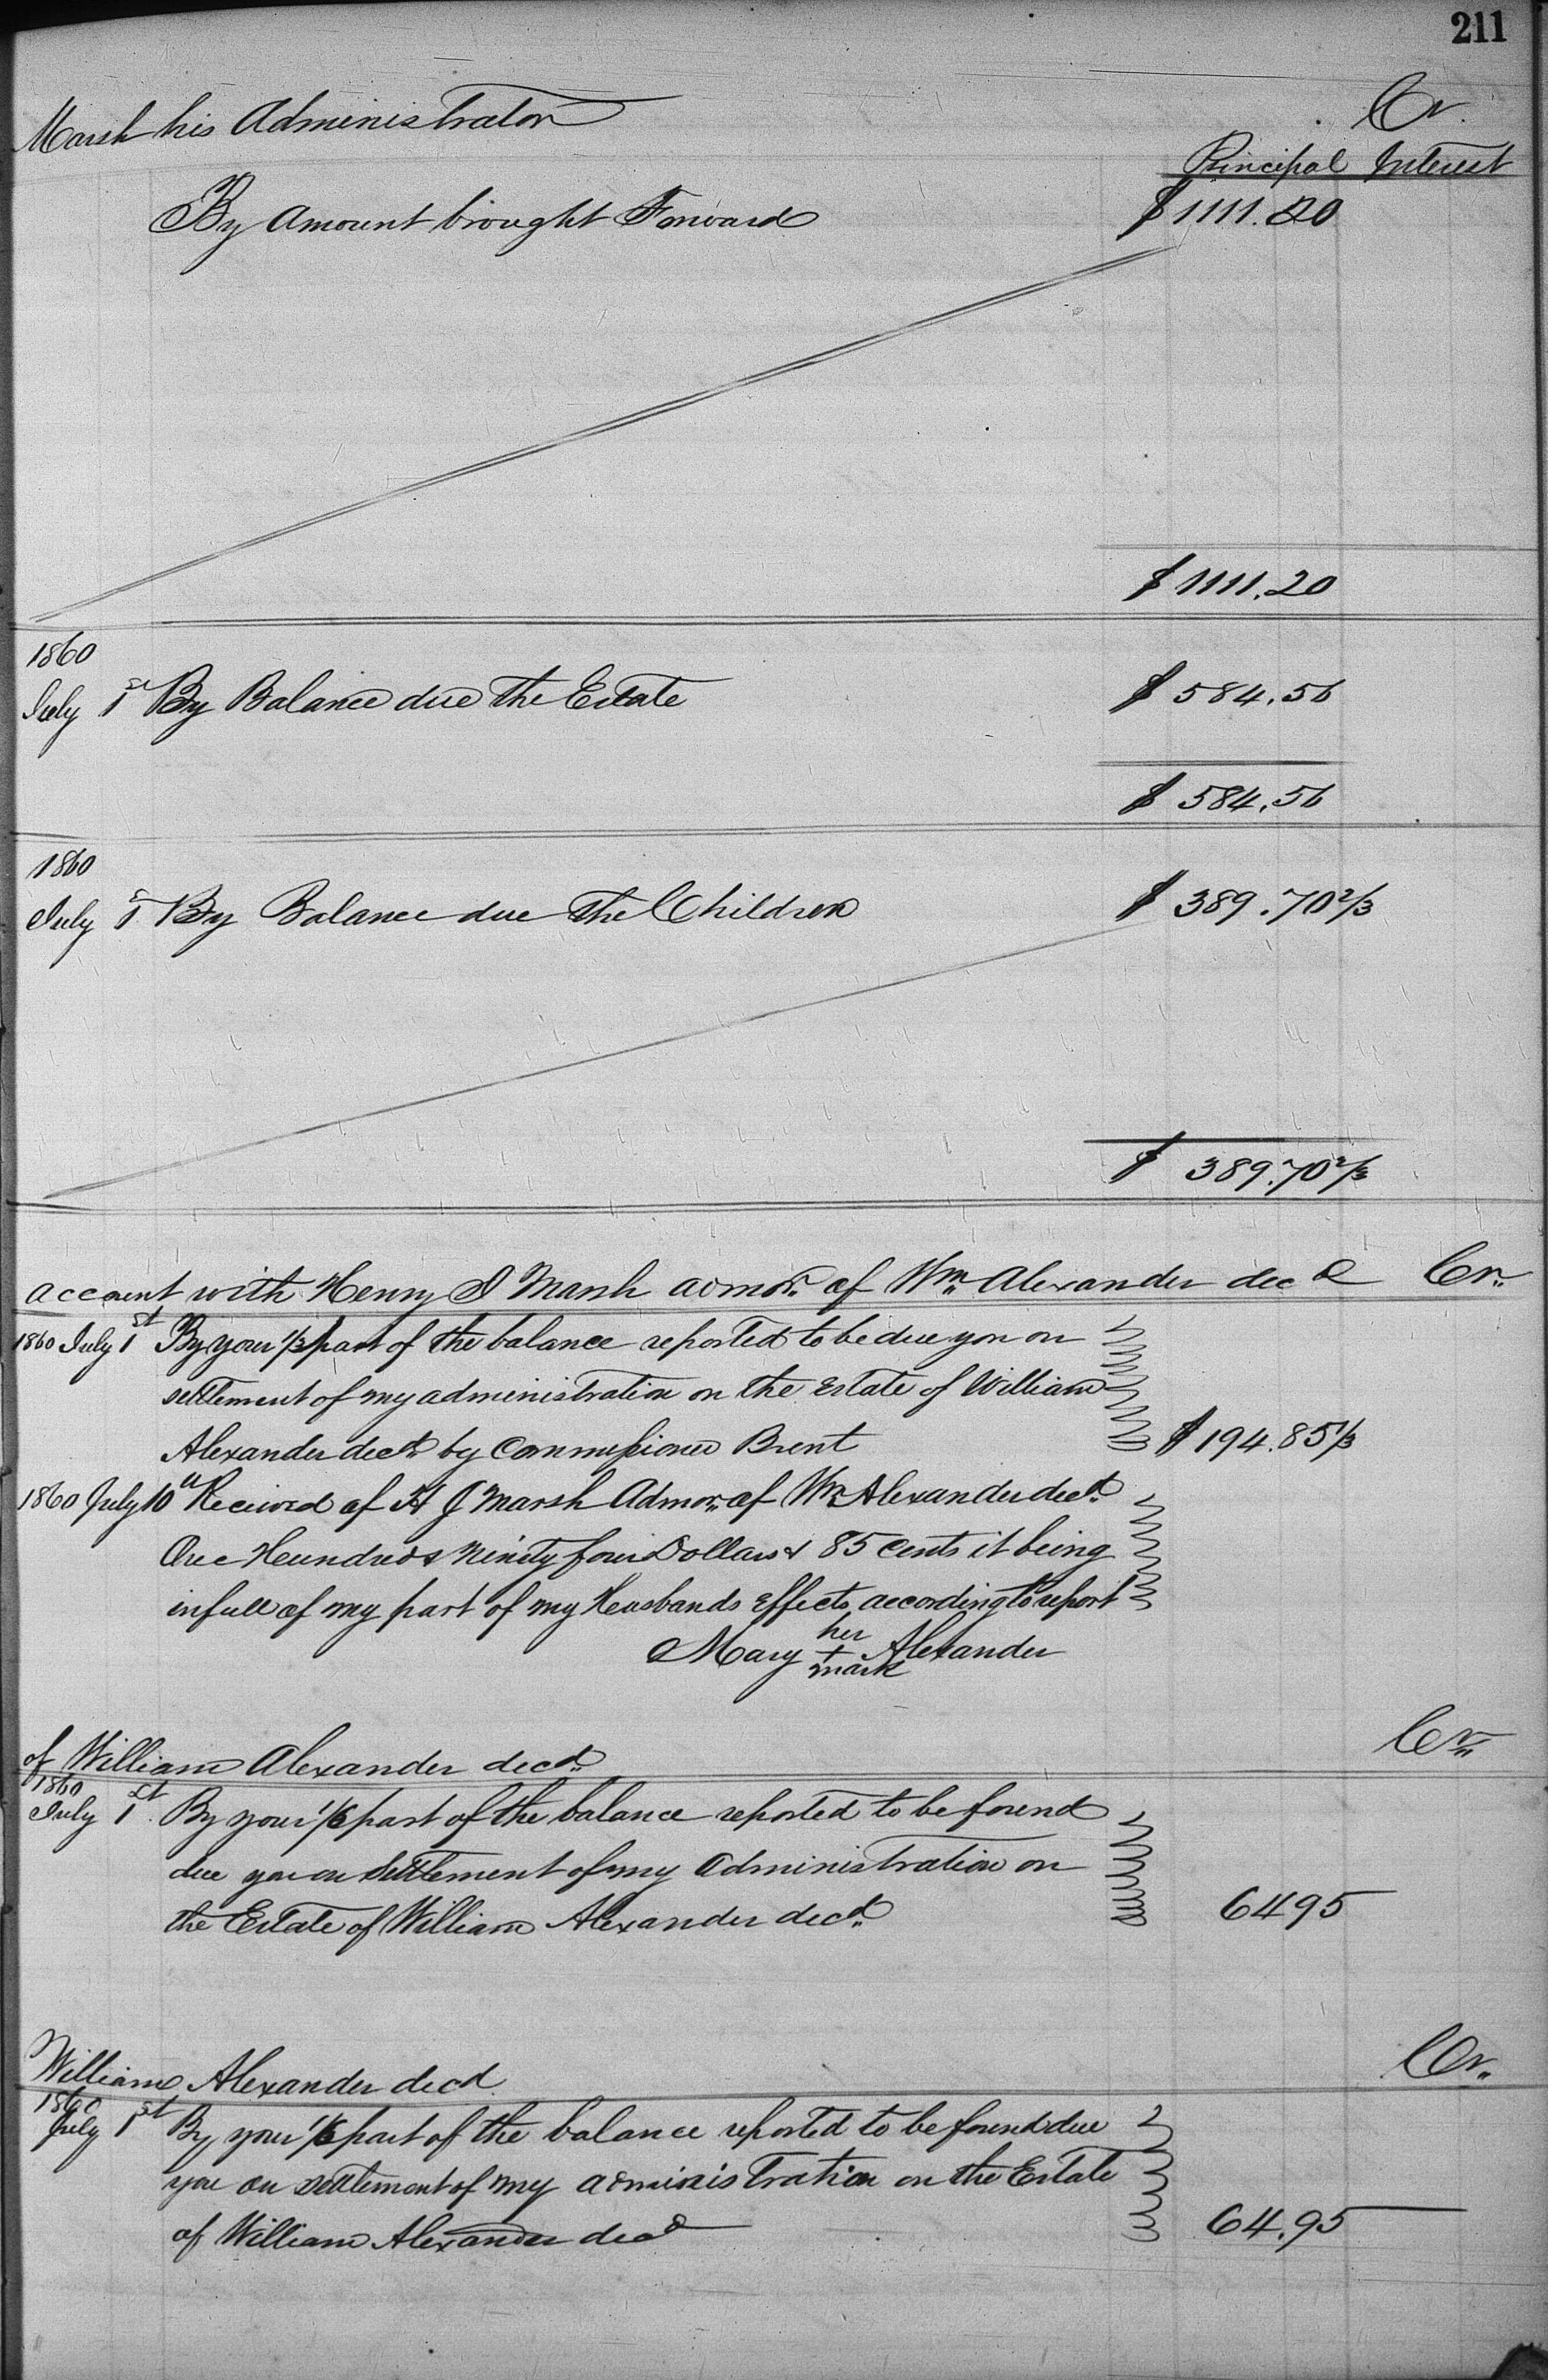 211
Marsh his Administrator Cr.
Principal Interest
By Amount brought Forward $1111.20
$1111.20
1860
July 1st By Balance due the Estate $584.56
$584.56
1860
July 1st By Balance due the Children $389.70 2/3
$389.70 2/3
account with Henry J Marsh admor. of Wm. Alexander decd Cr.
1860 July 1st By your 1/3 part of the balance reported to be due you on
settlement of my administration on the Estate of William
Alexander decd. by Commissioner Brent $194.85 1/3
1860 July 10th Received of H J Marsh Admor. of Wm. Alexander decd.
One Hundred & Ninety four Dollars & 85 cents it being
in full of my part of my Husbands Effects according to report
her
Mary + Alexander
mark
of William Alexander decd. Cr.
1860
July 1st By your 1/6 part of the balance reported to be found
due you on settlement of my Administration on
the Estate of William Alexander decd. 6495
William Alexander decd. Cr.
1860
July 1st By your 1/6 part of the balance reported to be found due
you on settlement of my administration on the Estate
of William Alexander decd 64.95